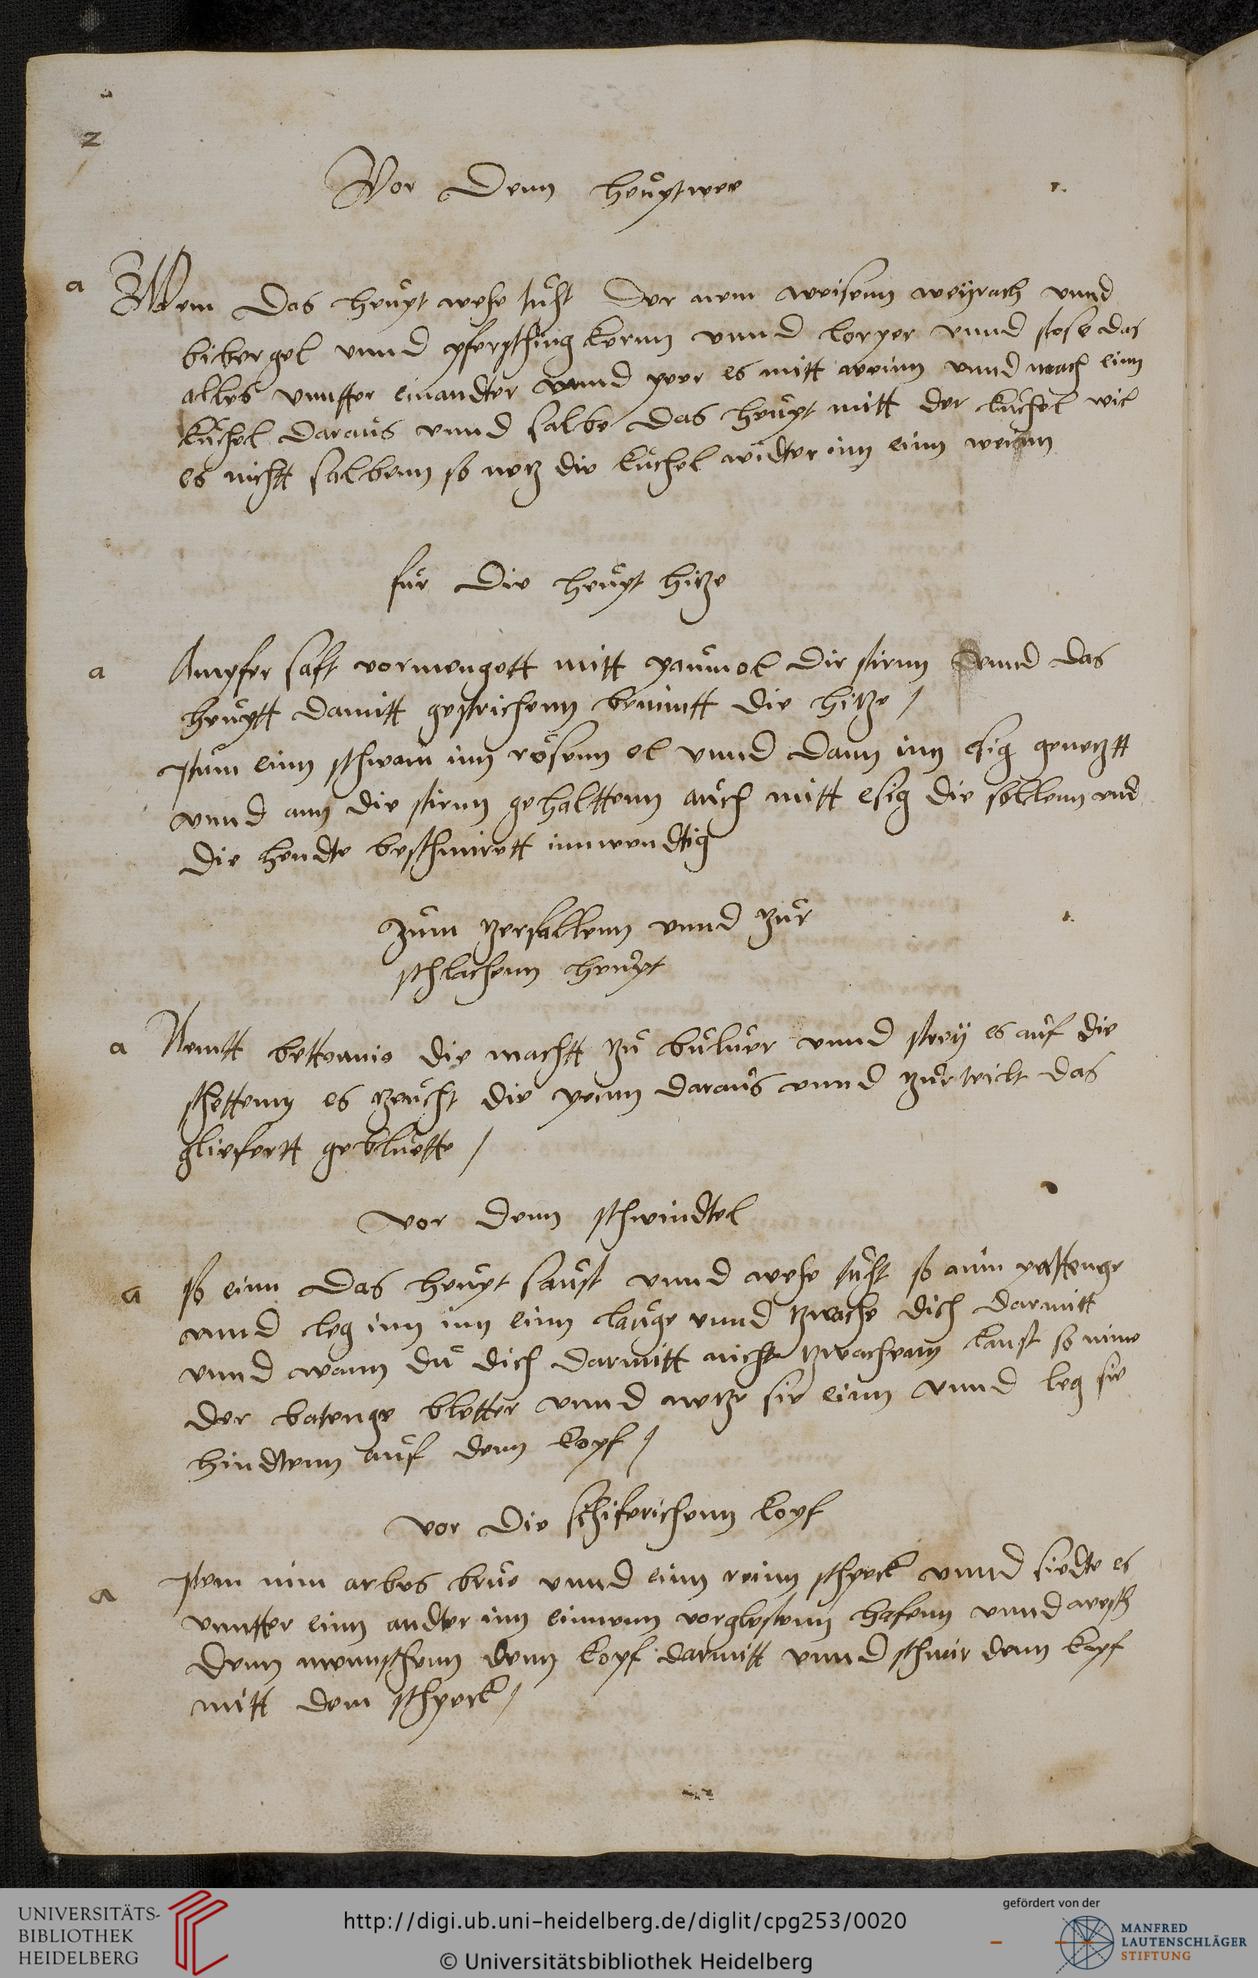 2
Vor denn heuptwee
a Wem das heupt wehe tuht der nem weisenn weyrach vnnd
bibergel vnnd pfersching kernn vnnd lorper vnnd stose das
alles vnntter einandter vnnd peer es mitt weinn vnnd mach einn
kuchel daraus vnnd salbe das heupt mitt der kuchel wil
es nichtt salbenn so netz die kuchel widter inn einn weinn
fur die heupt hitze
a Ampfer saft vormengett mitt paumol die stirnn vnnd das
heuptt damitt gestrichenn benimtt die hitze /
Itum einn schwam inn rosenn ol vnnd dann inn esig genetztt
vnnd ann die stirnn gehalttenn auch mitt esig die solllenn vnd
die hendte beschmirett innwendtig
Zum zerfallenn vnnd zur
schlachenn heupt
a Nemtt bettonnie die machtt zu buluer vnnd strey es auf die
schettenn es zeucht die peinn daraus vnnd zurteilt das
gliefertt gebluette /
vor denn schwindtel
a so einn das heupt saust vnnd wehe tuht so nim pattenge
vnnd leg inn inn einn lauge vnnd zwache dich darmitt
vnnd wann du dich darmitt nicht zwachenn kanst so nime
der batenge bletter vnnd netze sie einn vnnd leg sie
hindtenn auf denn kopf /
vor die schiferichenn kopf
a Item nim arbes brue vnnd einn reinn schpeck vnnd siedte es
vnntter einn andter inn einnenn vorglestenn hafenn vnnd wesch
denn mennschenn denn kopf darmitt vnnd schmir denn kopf
mitt dem schpeck /
UNIVERSITÄTS-
BIBLIOTHEK
HEIDELBERG
http://digi.ub.uni-heidelberg.de/diglit/cpg253/0020
© Universitätsbibliothek Heidelberg
gefördert von der
MANFRED
LAUTENSCHLÄGER
STIFTUNG